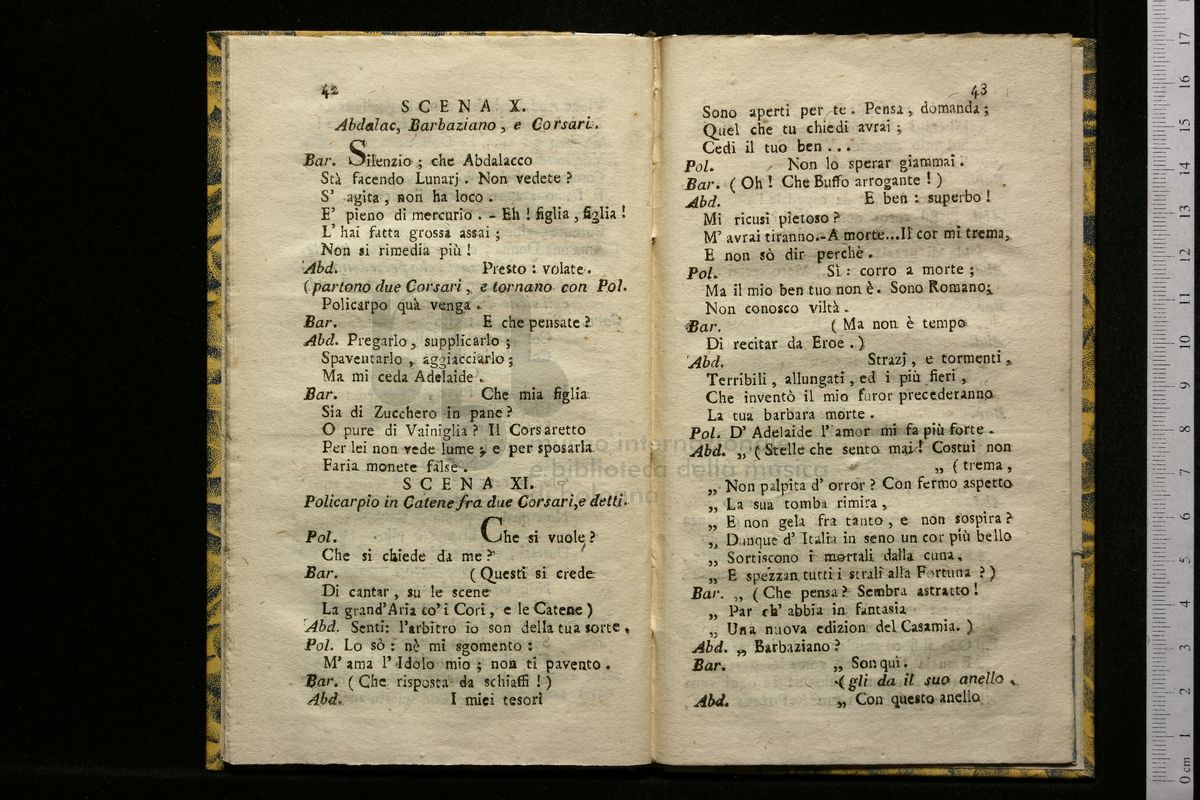 42
SCENA X.
Abdalac, Barbaziano, e Corsari.
Bar. Silenzio; che Abdalacco
Stà facendo Lunarj. Non vedete?
S' agita, non ha loco.
E' pieno di mercurio. - Eh! figlia, figlia!
L' hai fatta grossa assai;
Non si rimedia più!
Abd. Presto: volate.
(partono due Corsari, e tornano con Pol.
Policarpo quà venga.
Bar. E che pensate?
Abd. Pregarlo, supplicarlo;
Spaventarlo, aggiacciarlo;
Ma mi ceda Adelaide.
Bar. Che mia figlia
Sia di Zucchero in pane?
O pure di Vainiglia? Il Corsaretto
Per lei non vede lume; e per sposarla
Faria monete false.
SCENA XI.
Policarpio in Catene fra due Corsari, e detti.
Pol. Che si vuole?
Che si chiede da me?
Bar. (Questi si crede
Di cantar, su le scene
La grand'Aria co' i Cori, e le Catene)
Abd. Senti: l'arbitro io son della tua sorte.
Pol. Lo sò: nè mi sgomento:
M' ama l' Idolo mio; non ti pavento.
Bar. (Che risposta da schiaffi!)
Abd. I miei tesori
43
Sono aperti per te. Pensa, domanda;
Quel che tu chiedi avrai;
Cedi il tuo ben...
Pol. Non lo sperar giammai.
Bar. (Oh! Che Buffo arrogante!)
Abd. E ben: superbo!
Mi ricusi pietoso?
M' avrai tiranno.-A morte...Il cor mi trema,
E non sò dir perchè.
Pol. Sì: corro a morte;
Ma il mio ben tuo non è. Sono Romano;
Non conosco viltà.
Bar. (Ma non è tempo
Di recitar da Eroe.)
Abd. Strazj, e tormenti,
Terribili, allungati, ed i più fieri,
Che inventò il mio furor precederanno
La tua barbara morte.
Pol. D' Adelaide l' amor mi fa più forte.
Abd. „ (Stelle che sento mai! Costui non
„ (trema,
„ Non palpita d' orror? Con fermo aspetto
„ La sua tomba rimira,
„ E non gela fra tanto, e non sospira?
„ Dunque d' Italia in seno un cor più bello
„ Sortiscono i mortali dalla cuna,
„ E spezzan tutti i strali alla Fortuna?)
Bar. „ (Che pensa? Sembra astratto!
„ Par ch' abbia in fantasia
„ Una nuova edizion del Casamia.)
Abd. „ Barbaziano?
Bar. „ Son quì.
(gli da il suo anello.
Abd. „ Con questo anello
museo internazionale
e biblioteca della musica
17
16
15
14
13
12
11
10
9
8
7
6
5
4
3
2
1
0 cm